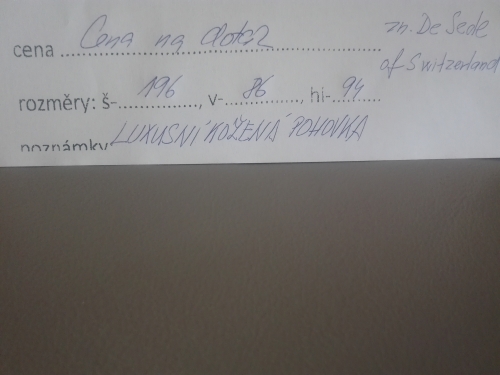 cena Cena na dotaz
zn. De Sede
of Switzerland
rozměry: š- 196, v- 86, hl- 94
poznámky LUXUSNÍ KOŽENÁ POHOVKA